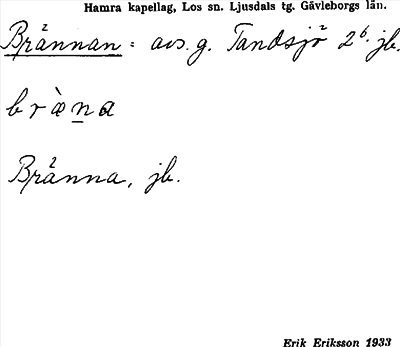 Hamra kapellag, Los sn. Ljusdals tg. Gävleborgs län.
Brännan: avs. g. Tandsjö 2⁶. jb.
bræ̀na
Bränna, jb.
Erik Eriksson 1933